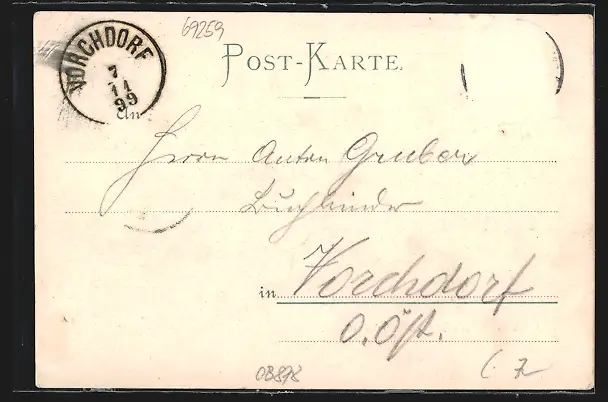 69259
VORCHDORF
7
11
99
POST-KARTE.
An
Herrn Anton Gruber
Buchbinder
in Vorchdorf
O. Öst.
OB898